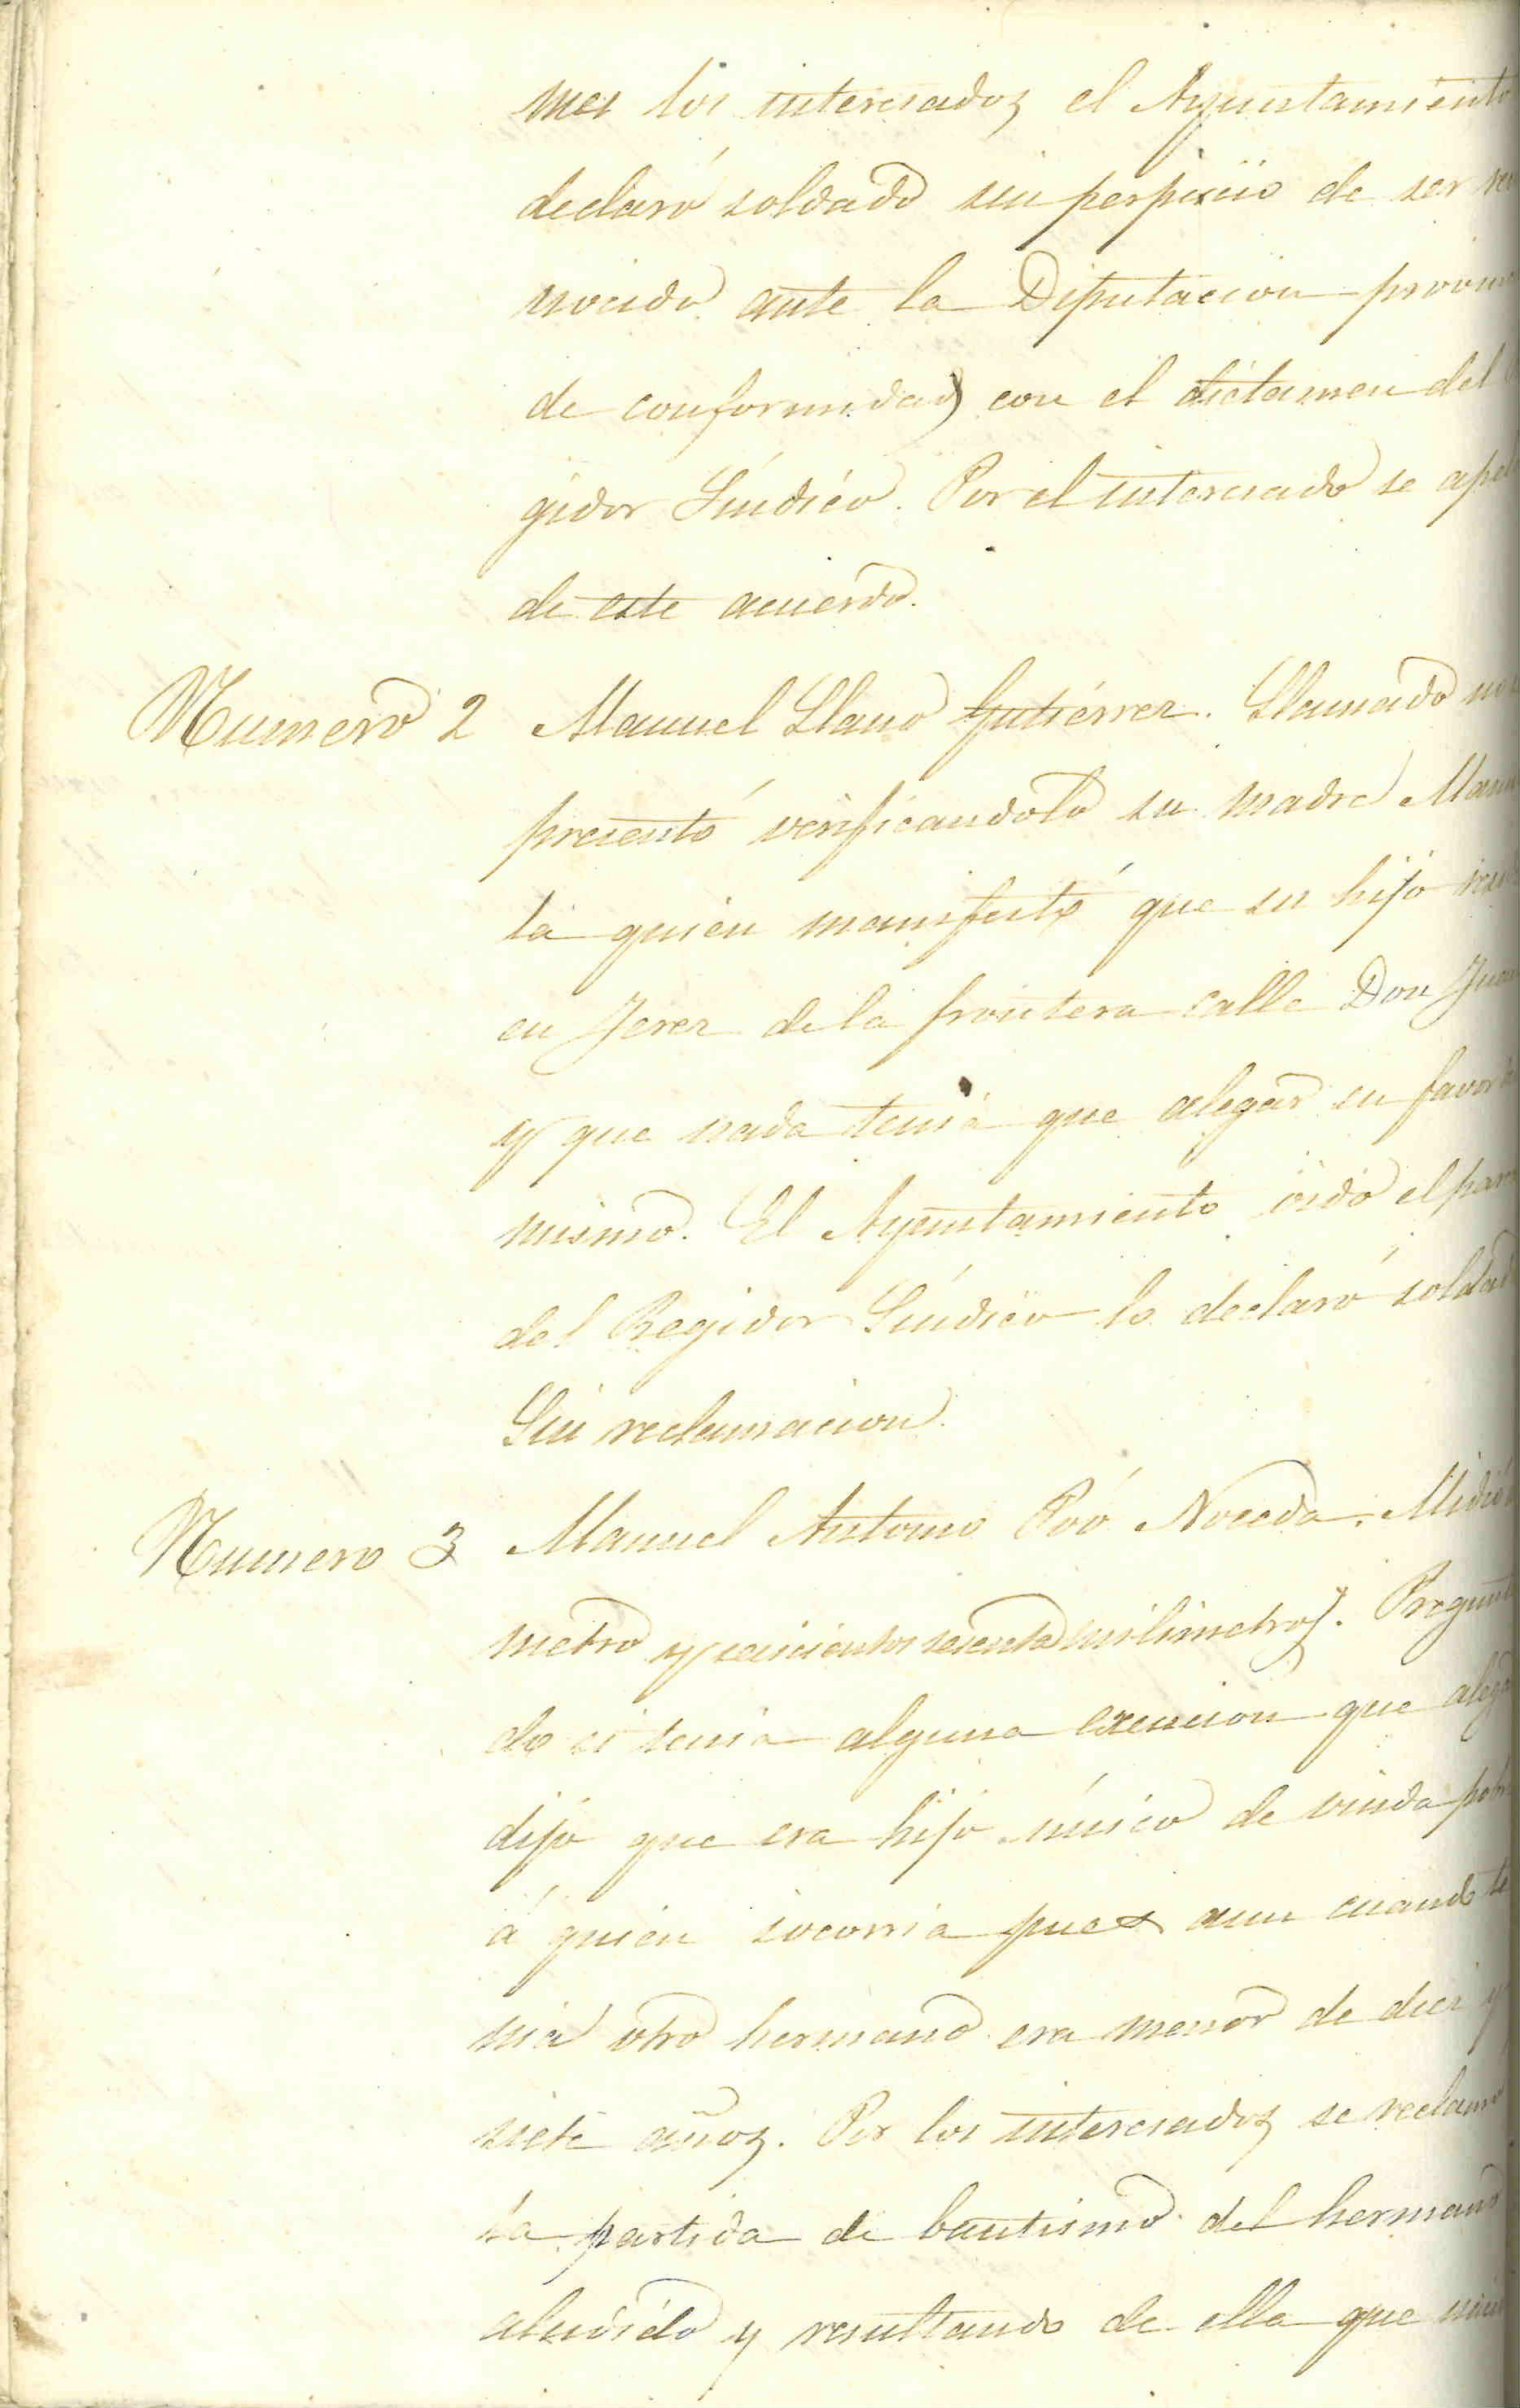 mes los interesados el Ayuntamiento
declaró soldado sin perjuicio de ser
nocido ante la Diputacion
de conformidad con el dictamen del
gidor Síndico. Por el interesado se
de este acuerdo.
Numero 2 Manuel Llano Gutiérrez. Llamado no
presentó verificandolo su madre
la quien manifestó que su hijo
en Jerez de la frontera calle Don Juan
y que nada tenia que alegar en favor
mismo. El Ayuntamiento oido el
del Regidor Síndico lo declaró soldado
Sin reclamacion.
Numero 3 Manuel Antonio Poó Noceda. Midió
metro y seiscientos sesenta milimetros.
do si tenia alguna exencion que
dijo que era hijo único de viuda
á quien socorria pues aun cuando te
nia otro hermano era menor de diez y
siete años. Por los interesados se reclamó
la partida de bautismo del hermano
aludido y resultando de ella que